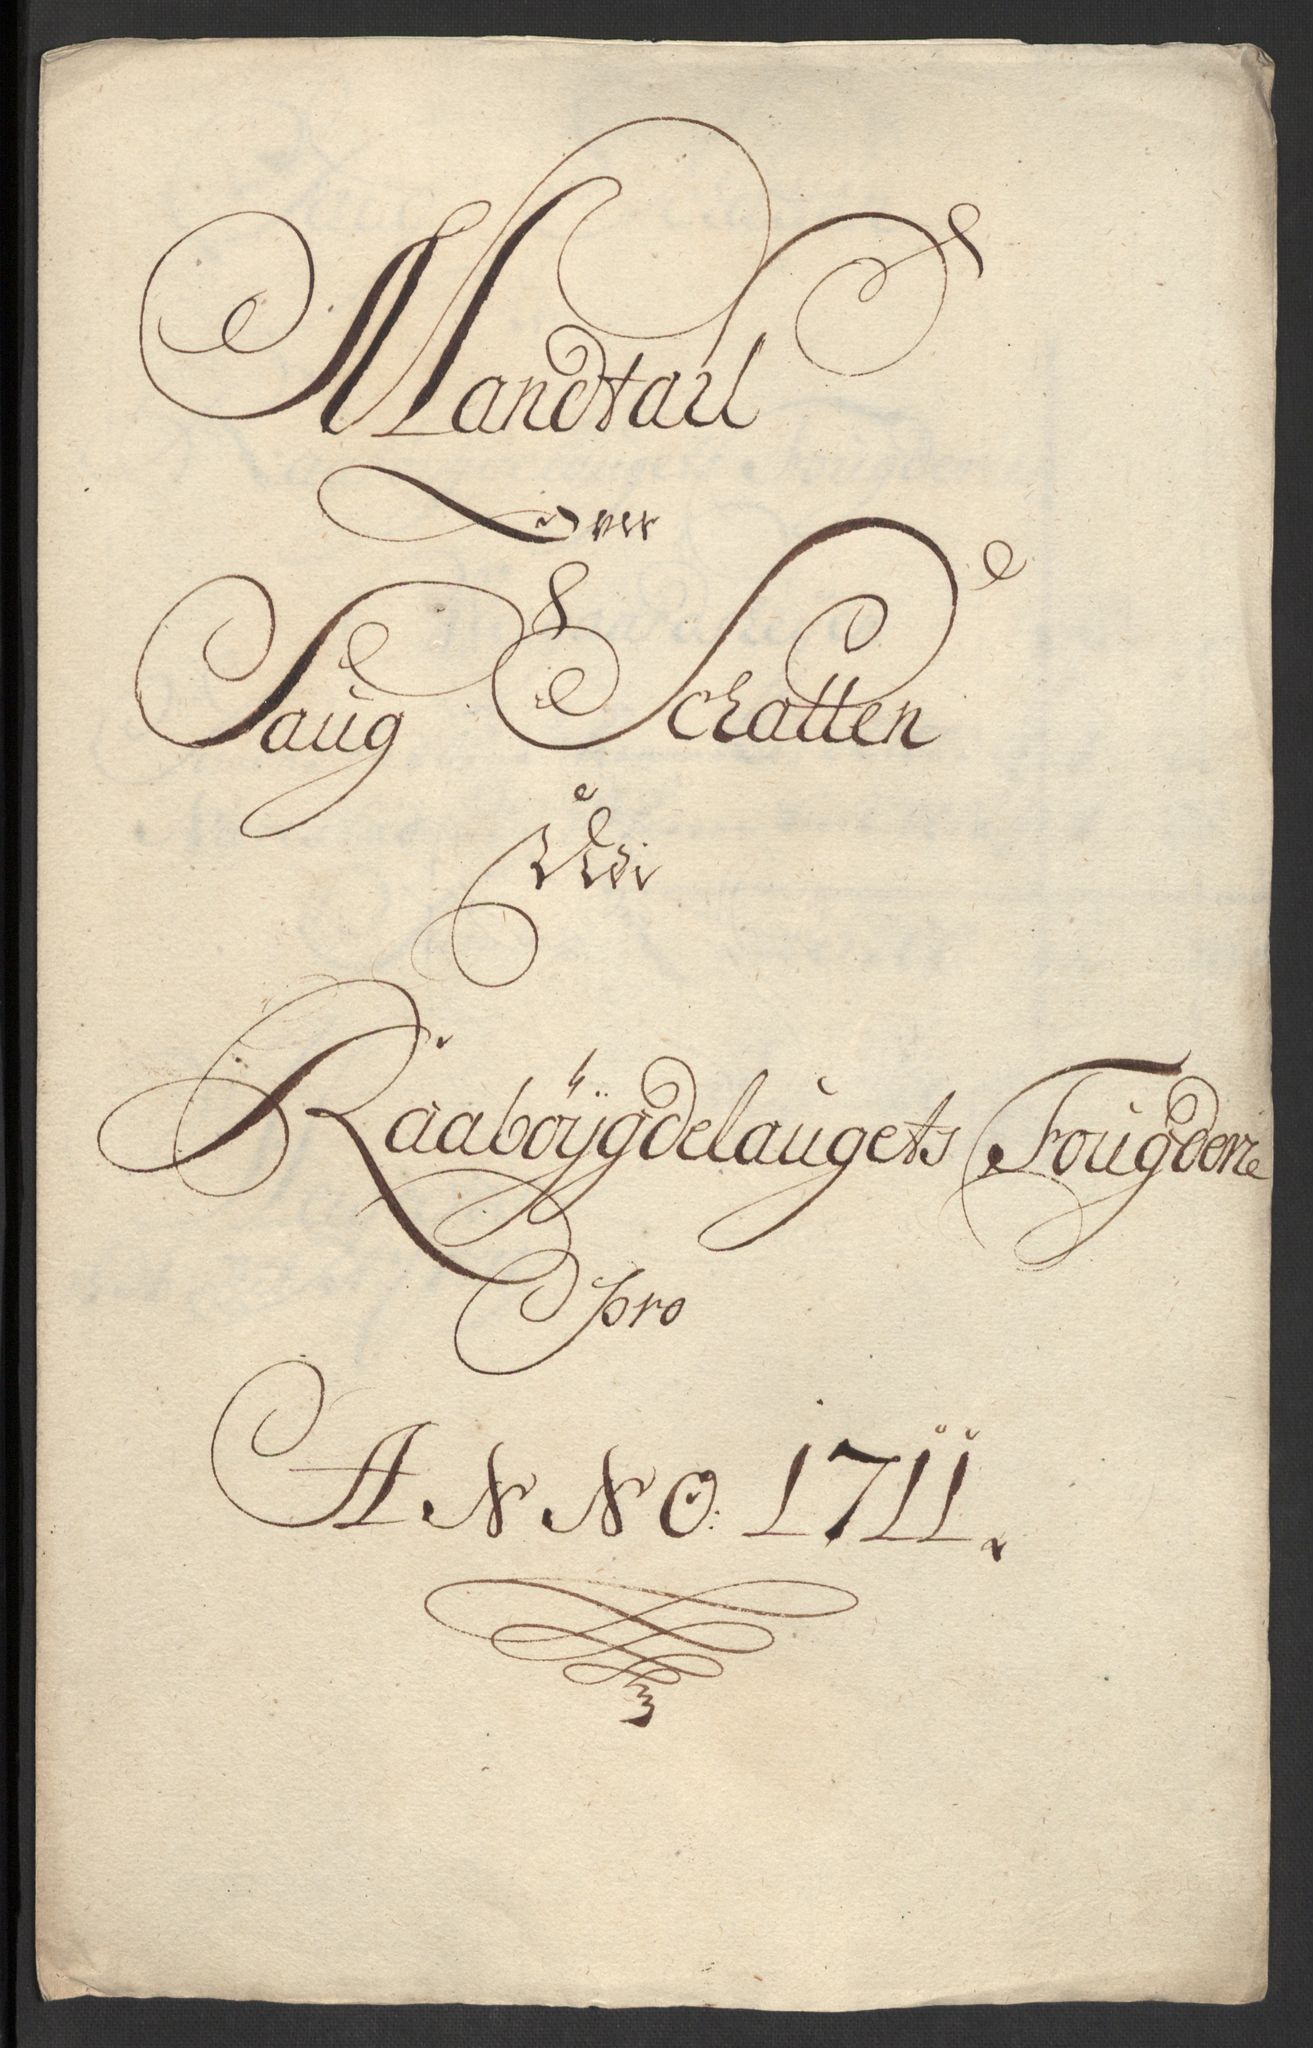 Mandtall
Over
Saug Schatten
Udi
Raabøÿgdelaugets Fougderie
pro
ANNO: 1711.